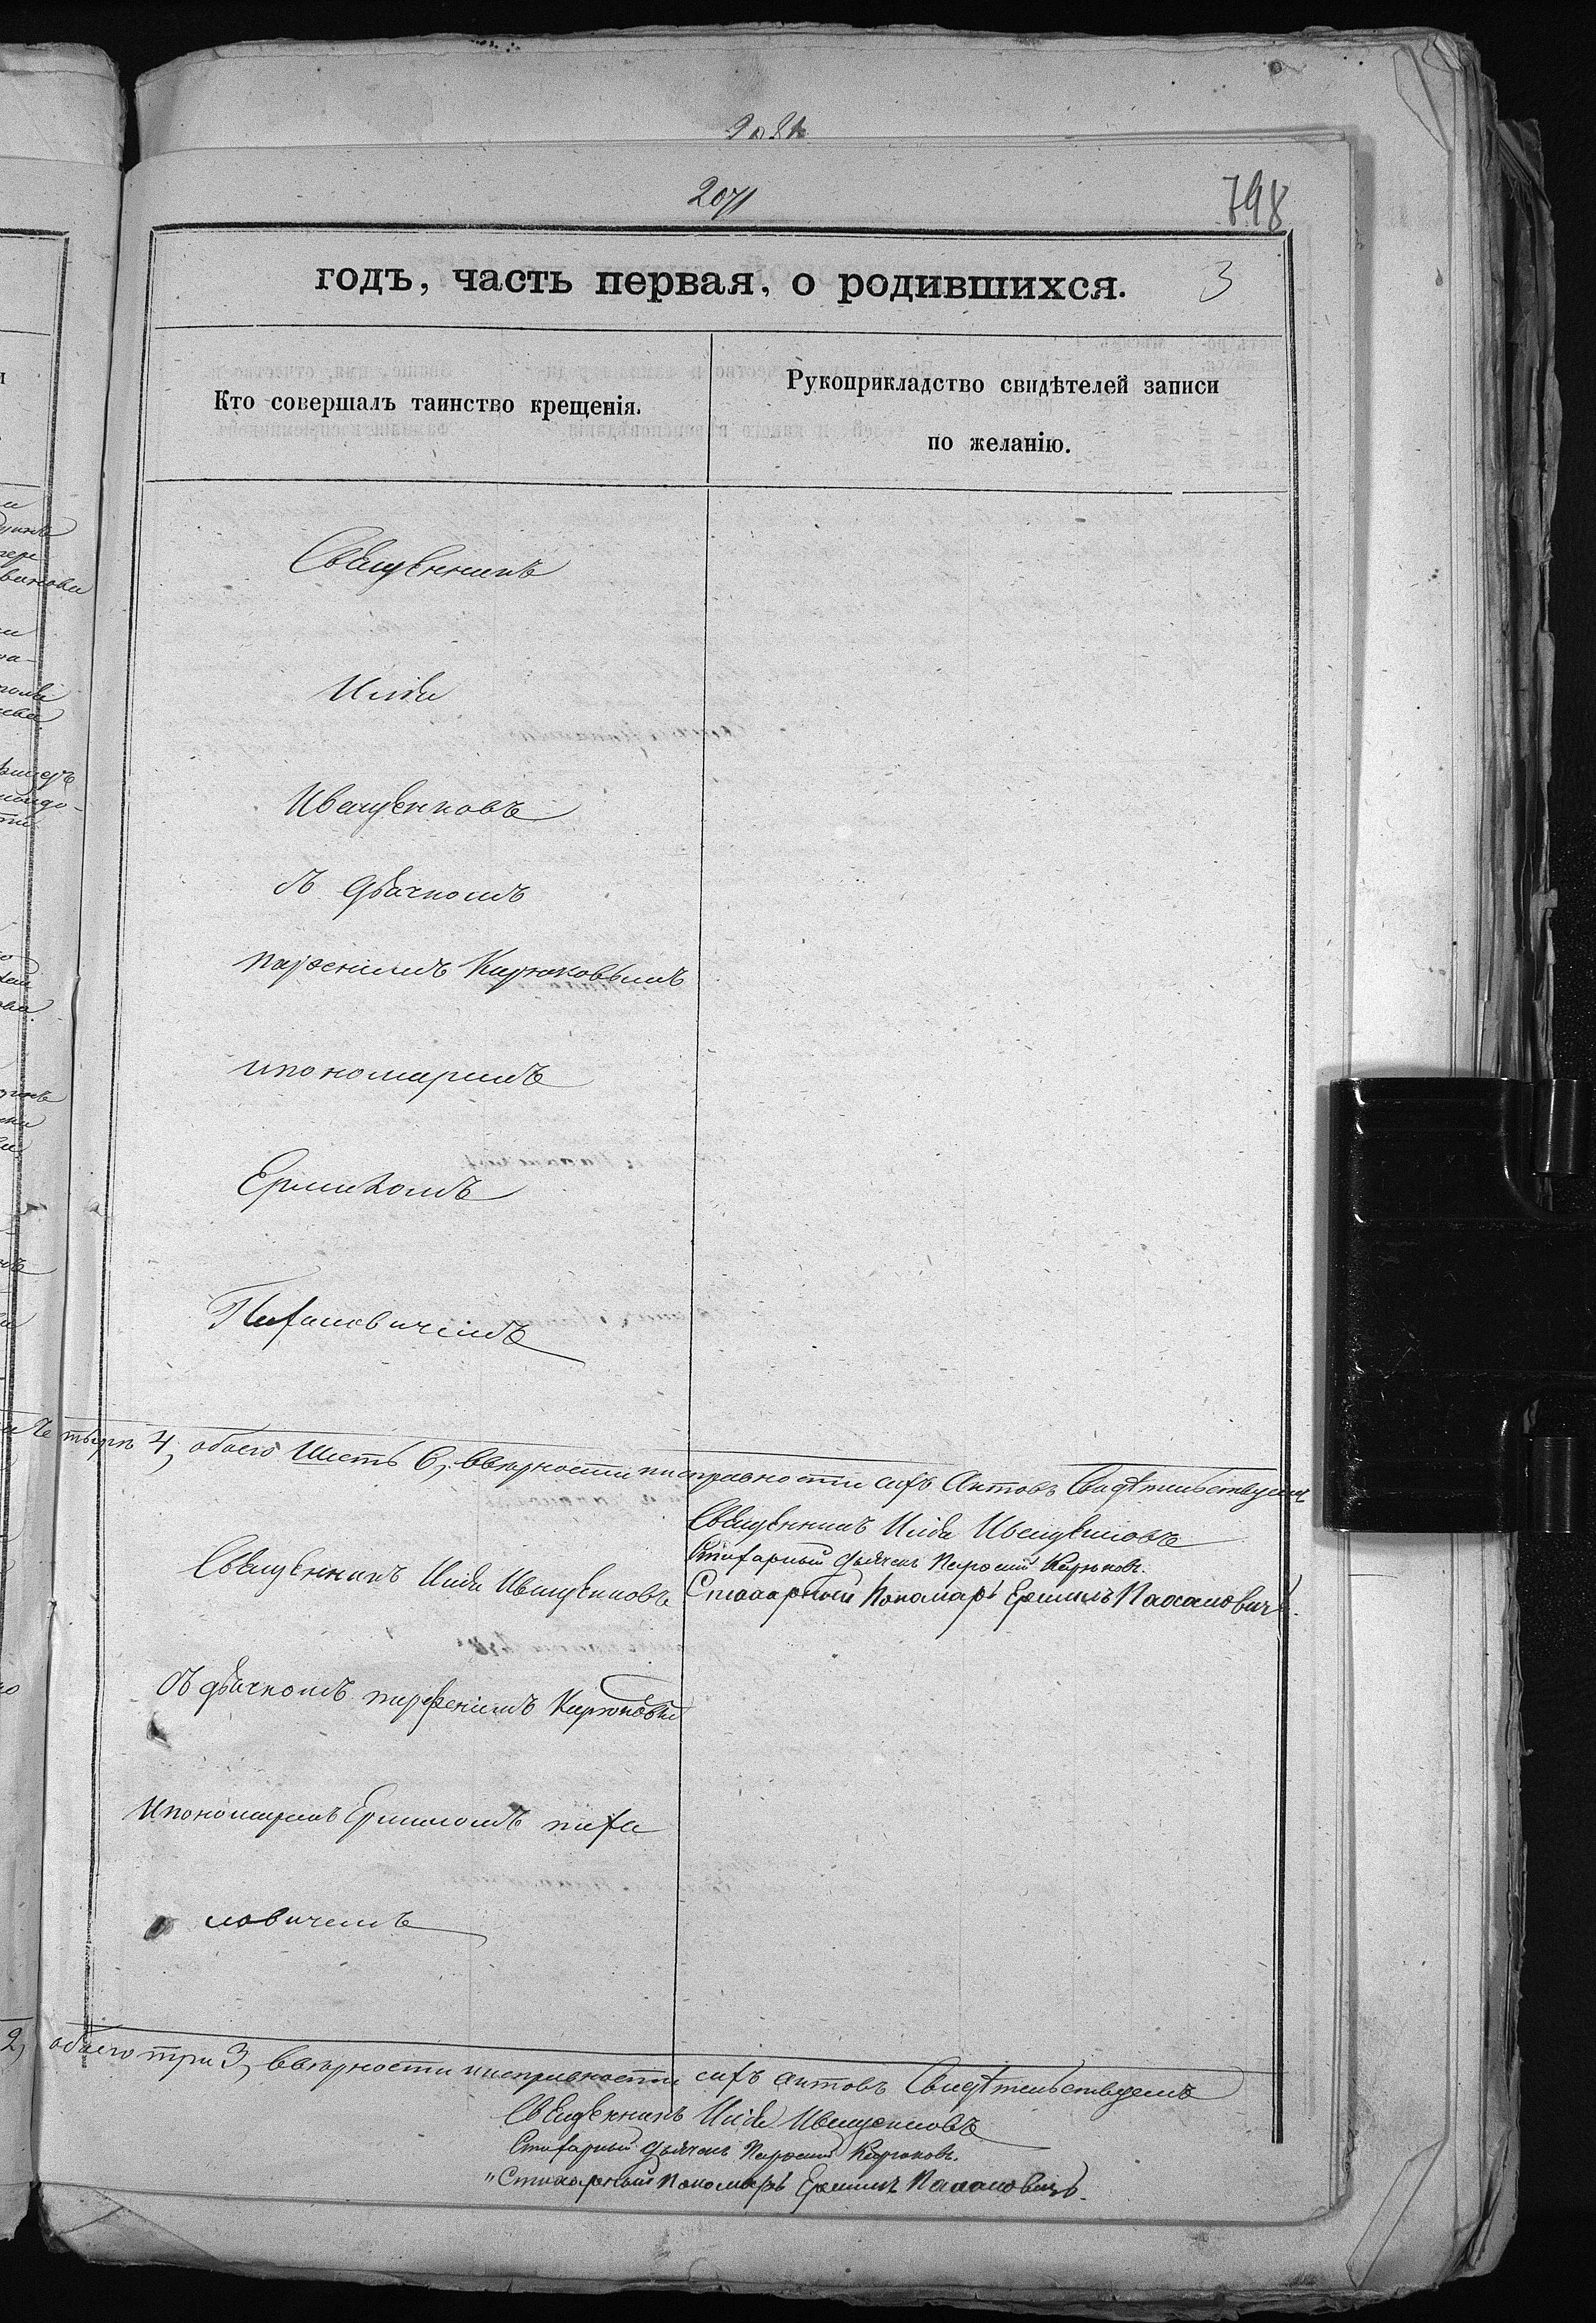 2071
798
годъ, часть первая, о родившихся. 3
Кто совершалъ таинство крещенія.
Рукоприкладство свидѣтелей записи
по желанію.
Священникъ
Илія
Иващенковъ
съ дьячкомъ
парѳеніемъ Кирюковымъ
ипономаремъ
Ермиломъ
Пахановичемъ
4, обоего Шесть 6, ввѣрности иисправности сихъ Актовъ Свидѣтельствуемъ
Священникъ Илія Иващенковъ
Стихарный дьячекъ Парѳеній Кирюковъ.
Стихарный Пономарь Ермилъ Пахановичъ.
Священникъ Илія Иващенковъ
съ дьячкомъ парѳеніемъ Кирюковым
Ипономаремъ Ермиломъ паха
новичемъ
2, обоего три 3, ввѣрности иисправности сихъ актовъ Свидѣтельствуемъ
Священникъ Илія Иващенковъ
Стихарный дьячекъ Парѳеній Кирюковъ.
Стихарный Пономарь Ермилъ Пахановичъ.